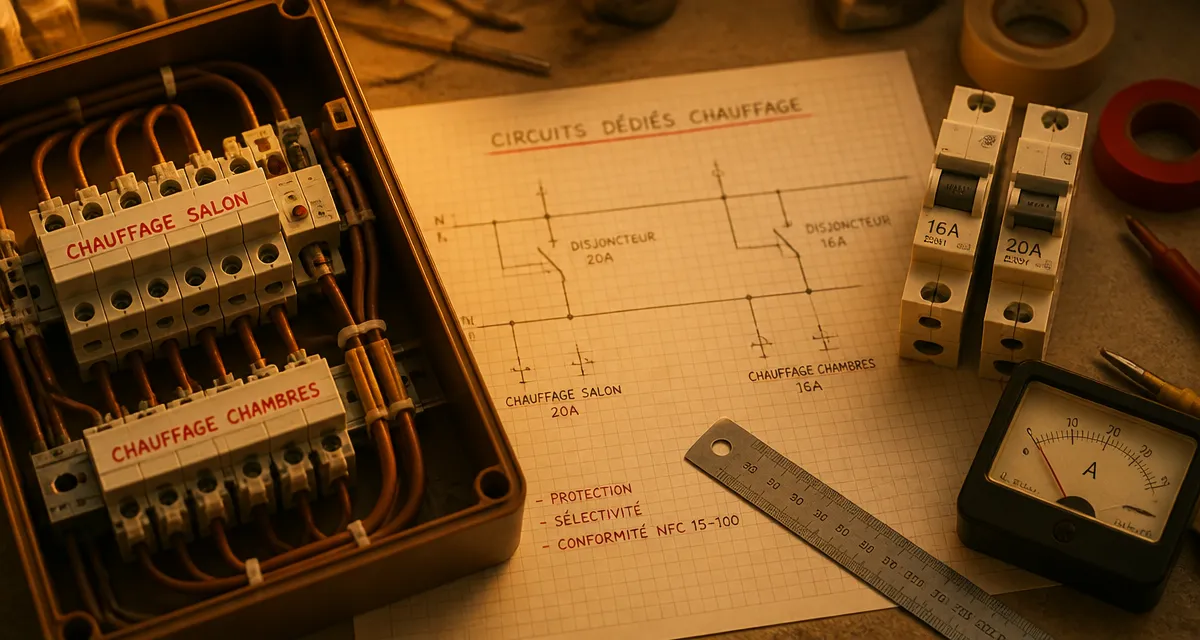 CHAUFFAGE SALON
CHAUFFAGE CHAMBRES
CIRCUITS DÉDIÉS CHAUFFAGE
N
DISJONCTEUR
20A
DISJONCTEUR
16A
CHAUFFAGE SALON
20A
CHAUFFAGE CHAMBRES
16A
- PROTECTION
- SÉLECTIVITÉ
- CONFORMITÉ NFC 15-100
16A
20A
10
A